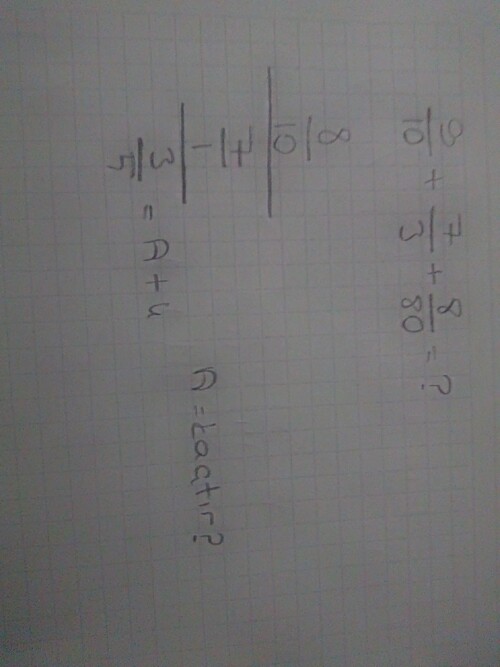 9/10 + 7/3 + 8/80 = ?
8/10
7/1
3/5 = A+4
A = kaçtır?